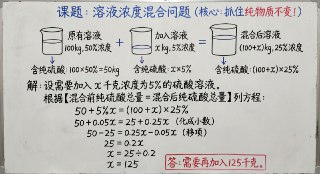 课题：溶液浓度混合问题（核心：抓住纯物质不变！）
原有溶液 100kg, 50%浓度 + 加入溶液 xkg, 5%浓度 = 混合后溶液 (100+x)kg, 25%浓度
含纯硫酸：100×50%=50kg 含纯硫酸：x×5% 含纯硫酸：(100+x)×25%
解：设需要加入 x 千克浓度为5%的硫酸溶液。
根据【混合前纯硫酸总量 = 混合后纯硫酸总量】列方程：
50 + 5%x = (100 + x) × 25%
50 + 0.05x = 25 + 0.25x （化成小数）
50 - 25 = 0.25x - 0.05x （移项）
25 = 0.2x
x = 25 ÷ 0.2
x = 125
答：需要再加入125千克。